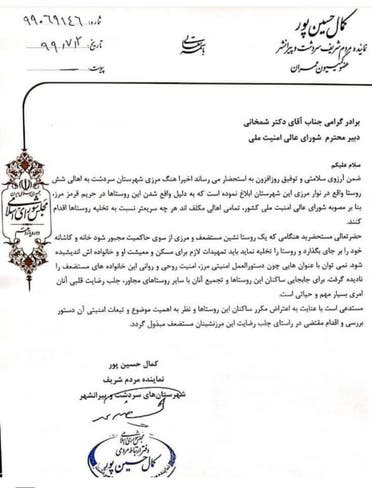 کمال حسین پور
نماینده مردم شریف سردشت و پیرانشهر
عضو کمیسیون عمران
باسمه تعالی
شماره: ۹۹۰۶۹۱۴۶
تاریخ: ۹۹/۷/۲
پیوست:
برادر گرامی جناب آقای دکتر شمخانی
دبیر محترم شورای عالی امنیت ملی
سلام علیکم
ضمن آرزوی سلامتی و توفیق روزافزون به استحضار می رساند اخیرا هنگ مرزی شهرستان سردشت به اهالی شش
روستا واقع در نوار مرزی این شهرستان ابلاغ نموده است که به دلیل واقع شدن این روستاها در حریم قرمز مرز،
بنا بر مصوبه شورای عالی امنیت ملی کشور، تمامی اهالی مکلف اند هر چه سریعتر نسبت به تخلیه روستاها اقدام
کنند.
حضرتعالی مستحضرید هنگامی که یک روستا نشین مستضعف و مرزی از سوی حاکمیت مجبور شود خانه و کاشانه
خود را بر جای بگذارد و روستا را تخلیه نماید باید تمهیدات لازم برای مسکن و معیشت او و خانواده اش اندیشیده
شود. نمی توان با عنوان هایی چون دستورالعمل امنیتی مرز، امنیت روحی و روانی این خانواده های مستضعف را
نادیده گرفت. برای جابجایی ساکنان این روستاها و تجمیع آنان با سایر روستاهای مجاور، جلب رضایت قلبی آنان
امری بسیار مهم و حیاتی است.
مستدعی است با عنایت به اعتراض مکرر ساکنان این روستاها و نظر به اهمیت موضوع و تبعات امنیتی آن دستور
بررسی و اقدام مقتضی در راستای جلب رضایت این مرزنشینان مستضعف مبذول گردد.
کمال حسین پور
نماینده مردم شریف
شهرستان‌های سردشت و پیرانشهر
مجلس شورای اسلامی
دفتر ارتباط مردمی
کمال حسین پور
جمهوری اسلامی ایران
مجلس شورای اسلامی
دوره یازدهم